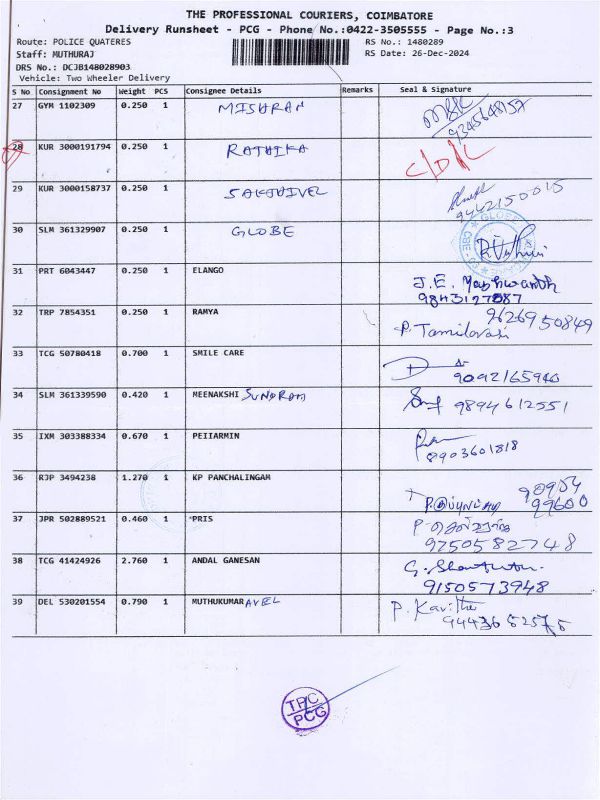 THE PROFESSIONAL COURIERS, COIMBATORE
Delivery Runsheet - PCG - Phone No.:0422-3505555 - Page No.:3
Route: POLICE QUATERES RS No.: 1480289
Staff: MUTHURAJ RS Date: 26-Dec-2024
DRS No.: DCJB148028903
Vehicle: Two Wheeler Delivery
S No Consignment No Weight PCS Consignee Details Remarks Seal & Signature
27 GYM 1102309 0.250 1 MISHRAM
9345648157
28 KUR 3000191794 0.250 1 RATHIKA C/D/L
29 KUR 3000158737 0.250 1 SAKTHIVEL
9442150015
30 SLM 361329907 0.250 1 GLOBE GLOBE
31 PRT 6043447 0.250 1 ELANGO J.E. Yashwanth
9843127887
32 TRP 7854351 0.250 1 RAMYA 9626950849
P. Tamilarasi
33 TCG 50780418 0.700 1 SMILE CARE
9092165940
34 SLM 361339590 0.420 1 MEENAKSHI SUNDRAM 9894612551
35 IXM 303388334 0.670 1 PEIIARMIN
8903601818
36 RJP 3494238 1.270 1 KP PANCHALINGAM 90954
99600
37 JPR 502889521 0.460 1 *PRIS
9750582748
38 TCG 41424926 2.760 1 ANDAL GANESAN
9150573948
39 DEL 530201554 0.790 1 MUTHUKUMARAVEL P. Kavitha
TP/C
PCG